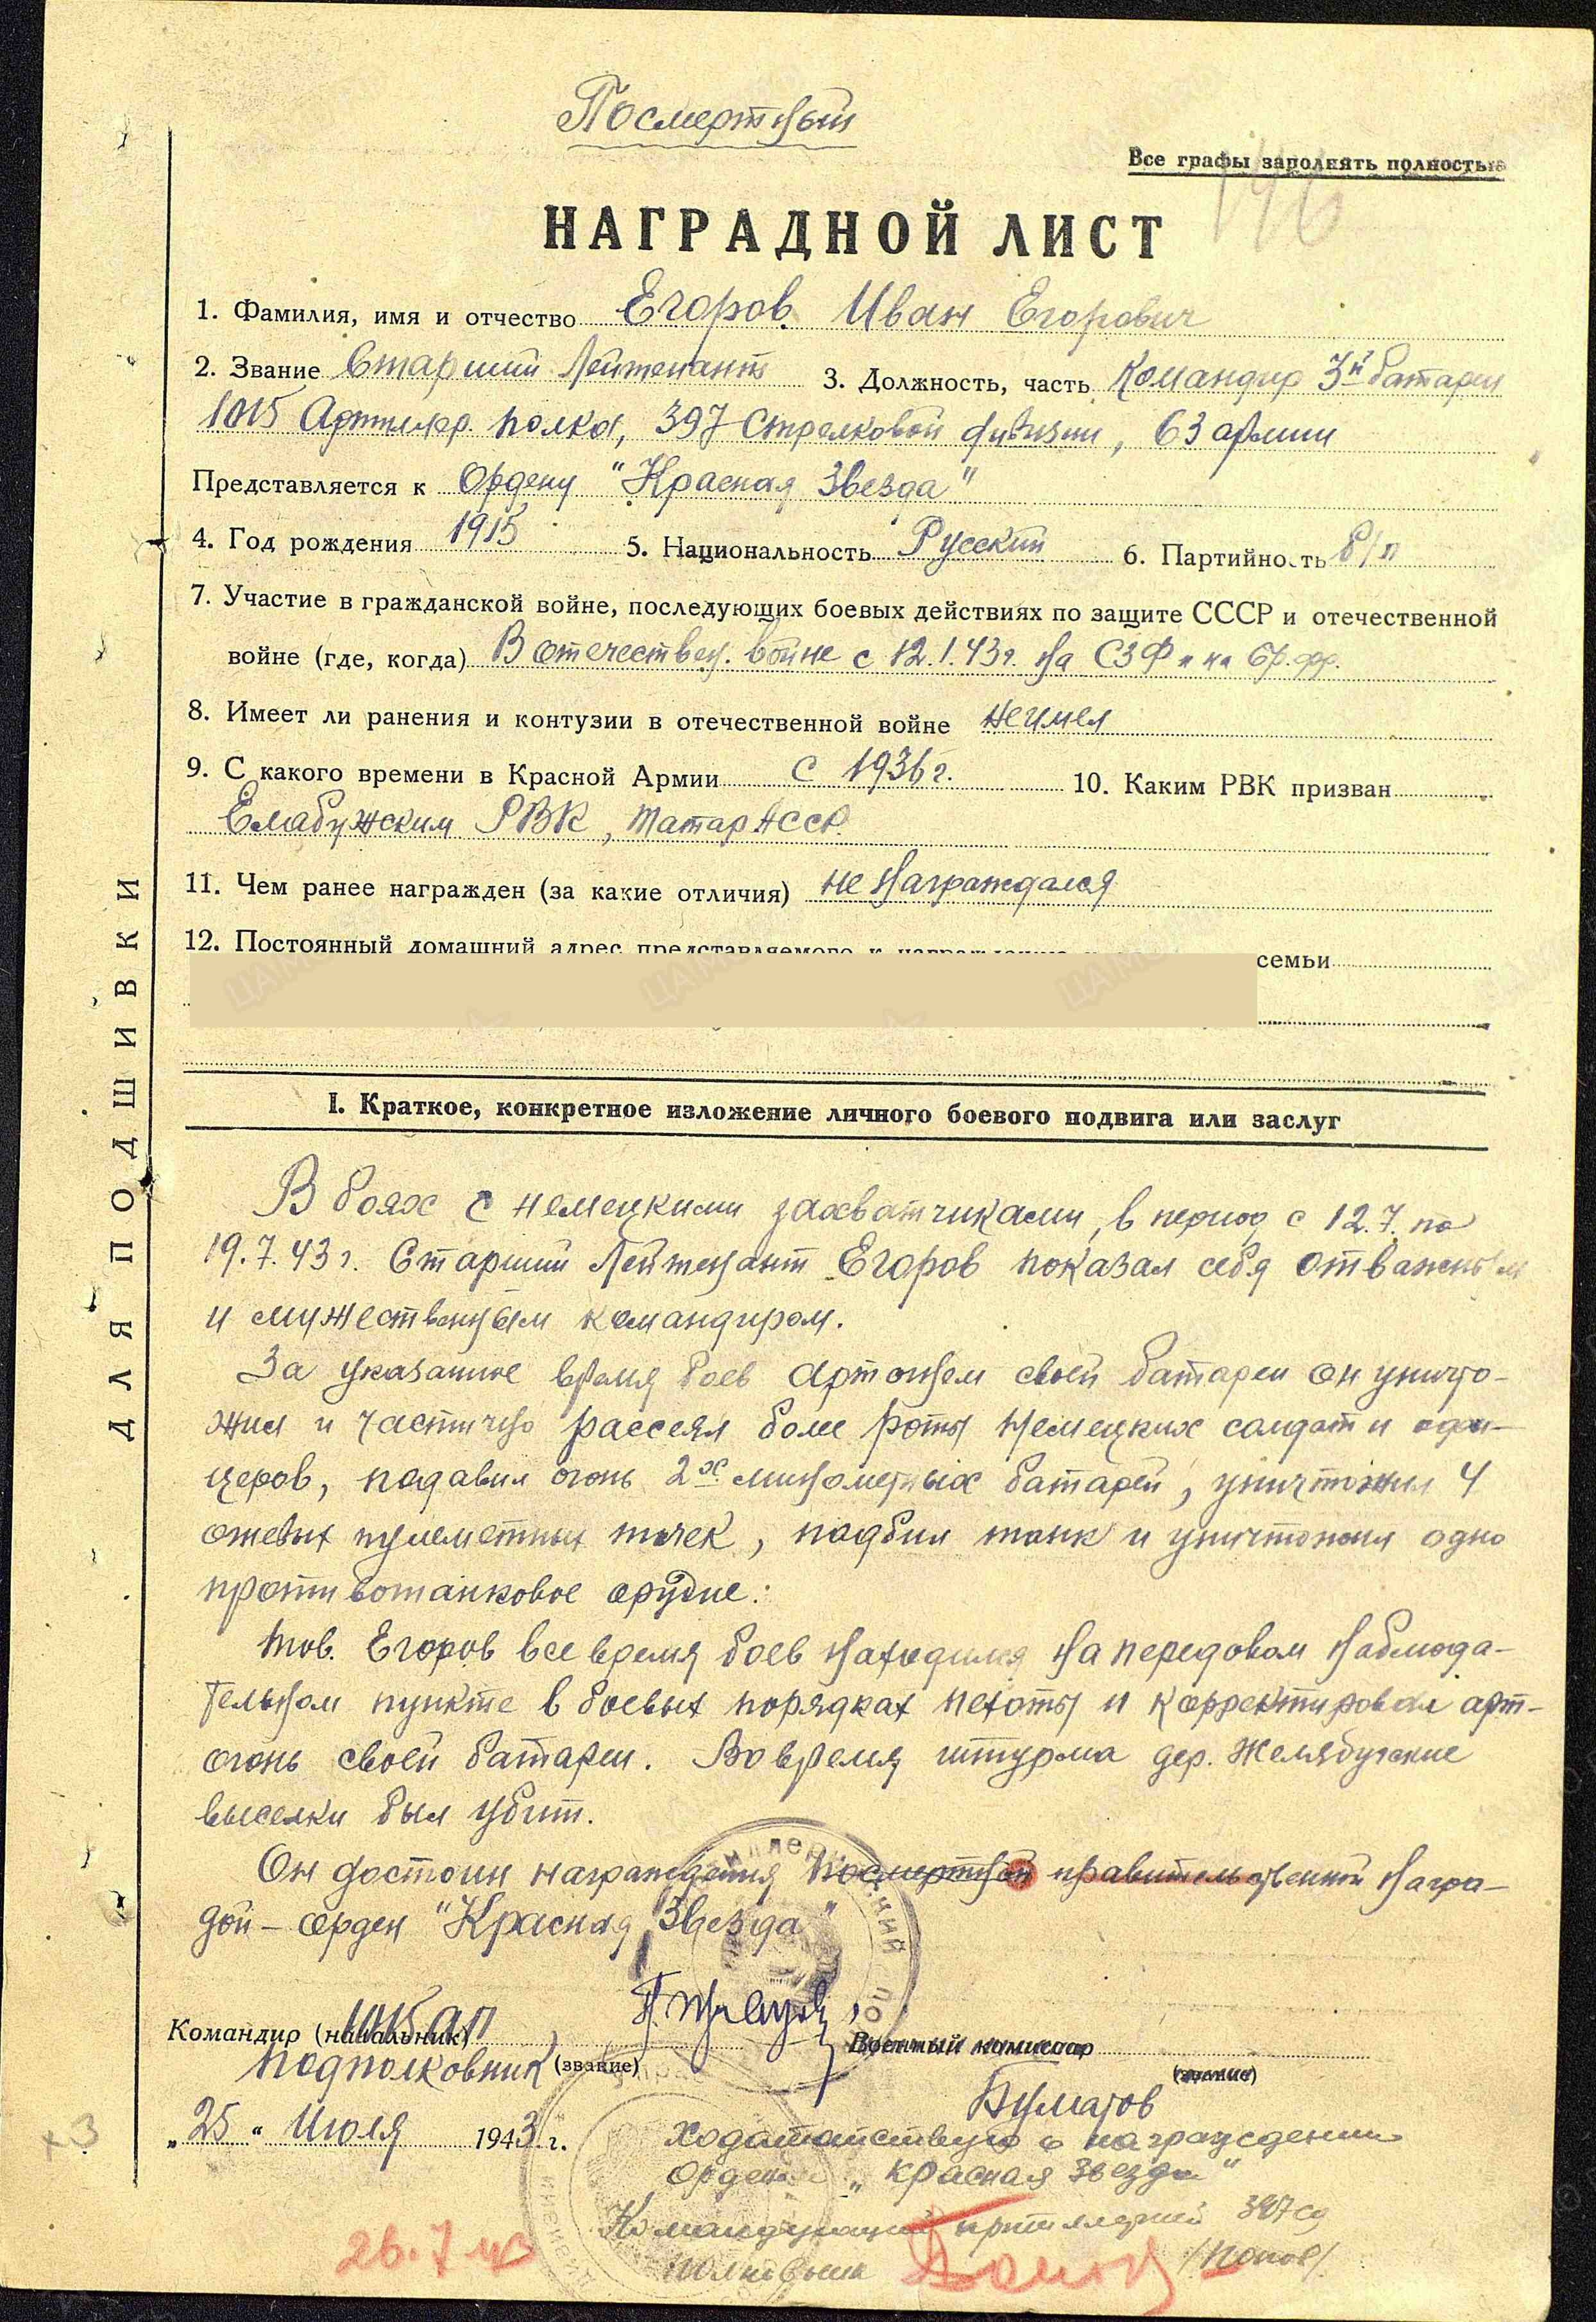 Посмертный
Все графы заполнять полностью
146
НАГРАДНОЙ ЛИСТ
1. Фамилия, имя и отчество Егоров Иван Егорович
2. Звание Старший Лейтенант 3. Должность, часть Командир 3й батареи
1015 Артиллер. полка, 397 Стрелковой дивизии, 63 армии
Представляется к Ордену "Красная Звезда"
4. Год рождения 1915 5. Национальность Русский 6. Партийность б/п
7. Участие в гражданской войне, последующих боевых действиях по защите СССР и отечественной
войне (где, когда) В отечествен. войне с 12.1.43г. на СЗФ и на бр. фр.
8. Имеет ли ранения и контузии в отечественной войне не имел
9. С какого времени в Красной Армии с 1936 г. 10. Каким РВК призван
Елабужским РВК, Татар АССР.
11. Чем ранее награжден (за какие отличия) не награждался
12. Постоянный домашний адрес представляемого к семьи
ДЛЯ ПОДШИВКИ
I. Краткое, конкретное изложение личного боевого подвига или заслуг
В боях с немецкими захватчиками, в период с 12.7. по
19.7.43 г. Старший Лейтенант Егоров показал себя отважным
и мужественным командиром.
За указанное время боев артогнем своей батареи он уничто-
жил и частично рассеял более роты немецких солдат и офи-
церов, подавил огонь 2х минометных батарей, уничтожил 4
огневых пулеметных точек, подбил танк и уничтожил одно
противотанковое орудие.
Тов. Егоров все время боев находился на передовом наблюда-
тельном пункте в боевых порядках пехоты и корректировал арт-
огонь своей батареи. Во время штурма дер. Желябугские
выселки был убит.
Он достоин награждения посмертной правительственной награ-
дой - орден "Красная Звезда"
Командир (начальник) 1015 ап
Военный комиссар
подполковник (звание)
(звание)
"25" Июля 1943 г.
Ходатайствую о награждении
орденом "Красная Звезда"
Командующий артиллерией 397 сд
полковник /Попов/
26.7.43